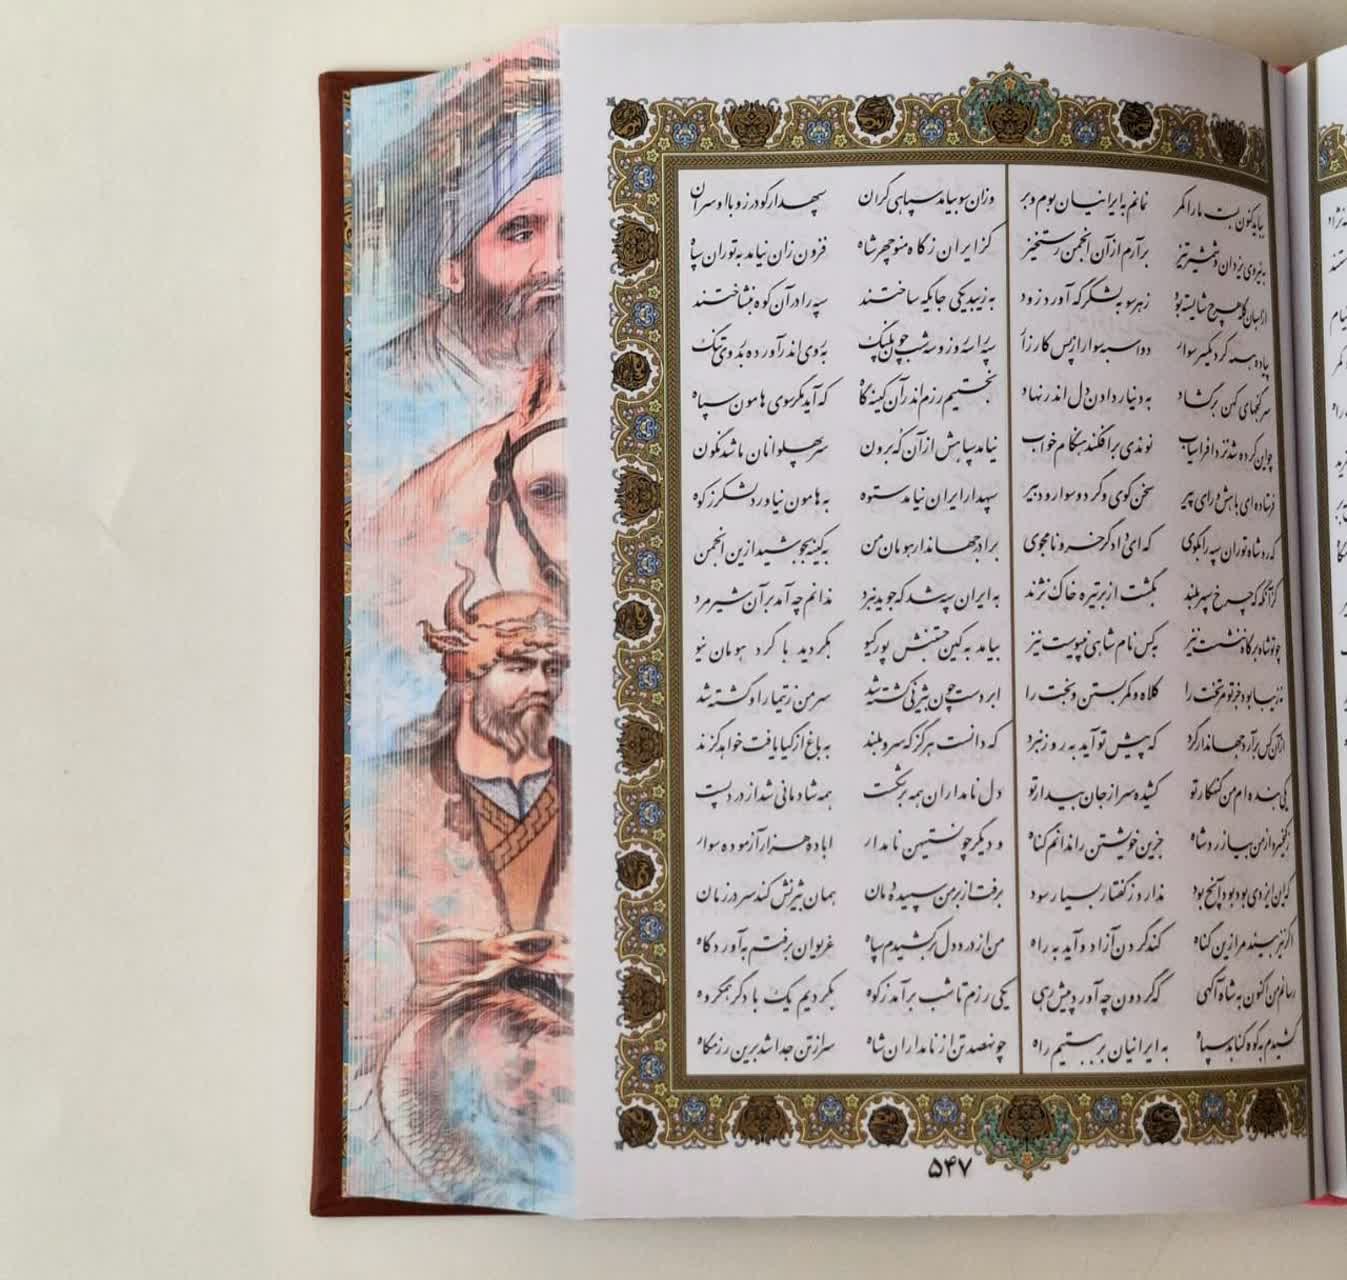 بباید کنون بست ما را کمر نمانم به ایرانیان بوم و بر
به نیروی یزدان و شمشیر تیز برآرم از آن انجمن رستخیز
از اسبان گله هرچ شایسته بود ز هر سو به لشکرگه آورد زود
پیاده همه کرد یکسر سوار دو اسبه سوار از پس کارزار
سر گنجهای کهن برگشاد به دینار دادن دل اندر نهاد
چو این کرده شد نزد افراسیاب نوندی برافکند هنگام خواب
فرستاده ای باهش و رای پیر سخن گوی و گرد و سوار و دبیر
که رو شاه توران سپه را بگوی که ای دادگر خسرو نامجوی
کز آنگه که چرخ سپهر بلند بگشت از بر تیره خاک نژند
چو تو شاه بر گاه ننشست نیز به کس نام شاهی نپیوست نیز
نه زیبا بود جز تو مر تخت را کلاه و کمر بستن و بخت را
از آن کس برآرد جهاندار گرد که پیش تو آید به روز نبرد
یکی بنده ام من گنهکار تو کشیده سر از جان بیدار تو
ز کیخسرو از من بیازرد شاه جزین خویشتن را ندانم گناه
که این ایزدی بود بود آنچ بود ندارد ز گفتار بسیار سود
اگر نیز بیند مرا زین گناه کند گردن آزاد و آید به راه
رسانم من اکنون به شاه آگهی که گردون چه آورد پیش رهی
کشیدم به کوه کنابد سپاه به ایرانیان بر ببستیم راه
وزان سو بیامد سپاهی گران سپهدار گودرز و با او سران
کز ایران ز گاه منوچهر شاه فزون زان نیامد به توران سپاه
به زیبد یکی جایگه ساختند سپه را در آن کوه بنشاختند
سپه را سه روز و سه شب چون پلنگ به روی اندر آورده بد روی تنگ
نجستیم رزم اندر آن کینه گاه که آید مگر سوی هامون سپاه
نیامد سپاهش از آن که برون سر پهلوانان ما شد نگون
سپهدار ایران نیامد ستوه به هامون نیاورد لشکر ز کوه
برادر جهاندار هومان من به کینه بجوشید ازین انجمن
به ایران سپه شد که جوید نبرد ندانم چه آمد بر آن شیرمرد
بیامد به کین جستنش پور گیو بگردید با گرد هومان نیو
ابر دست چون بیژنی کشته شد سر من ز تیمار او گشته شد
که دانست هرگز که سرو بلند به باغ از گیا یافت خواهد گزند
دل نامداران همه بر شکست همه شادمانی شد از درد پست
و دیگر چو نستیهن نامدار ابا ده هزار آزموده سوار
برفت از بر من سپیده دمان همان بیژنش کند سر در زمان
من از درد دل برکشیدم سپاه غریوان برفتم به آوردگاه
یکی رزم تا شب برآمد ز کوه بکردیم یک با دگر همگروه
چو نهصد تن از نامداران شاه سر از تن جدا شد برین رزمگاه
۵۴۷